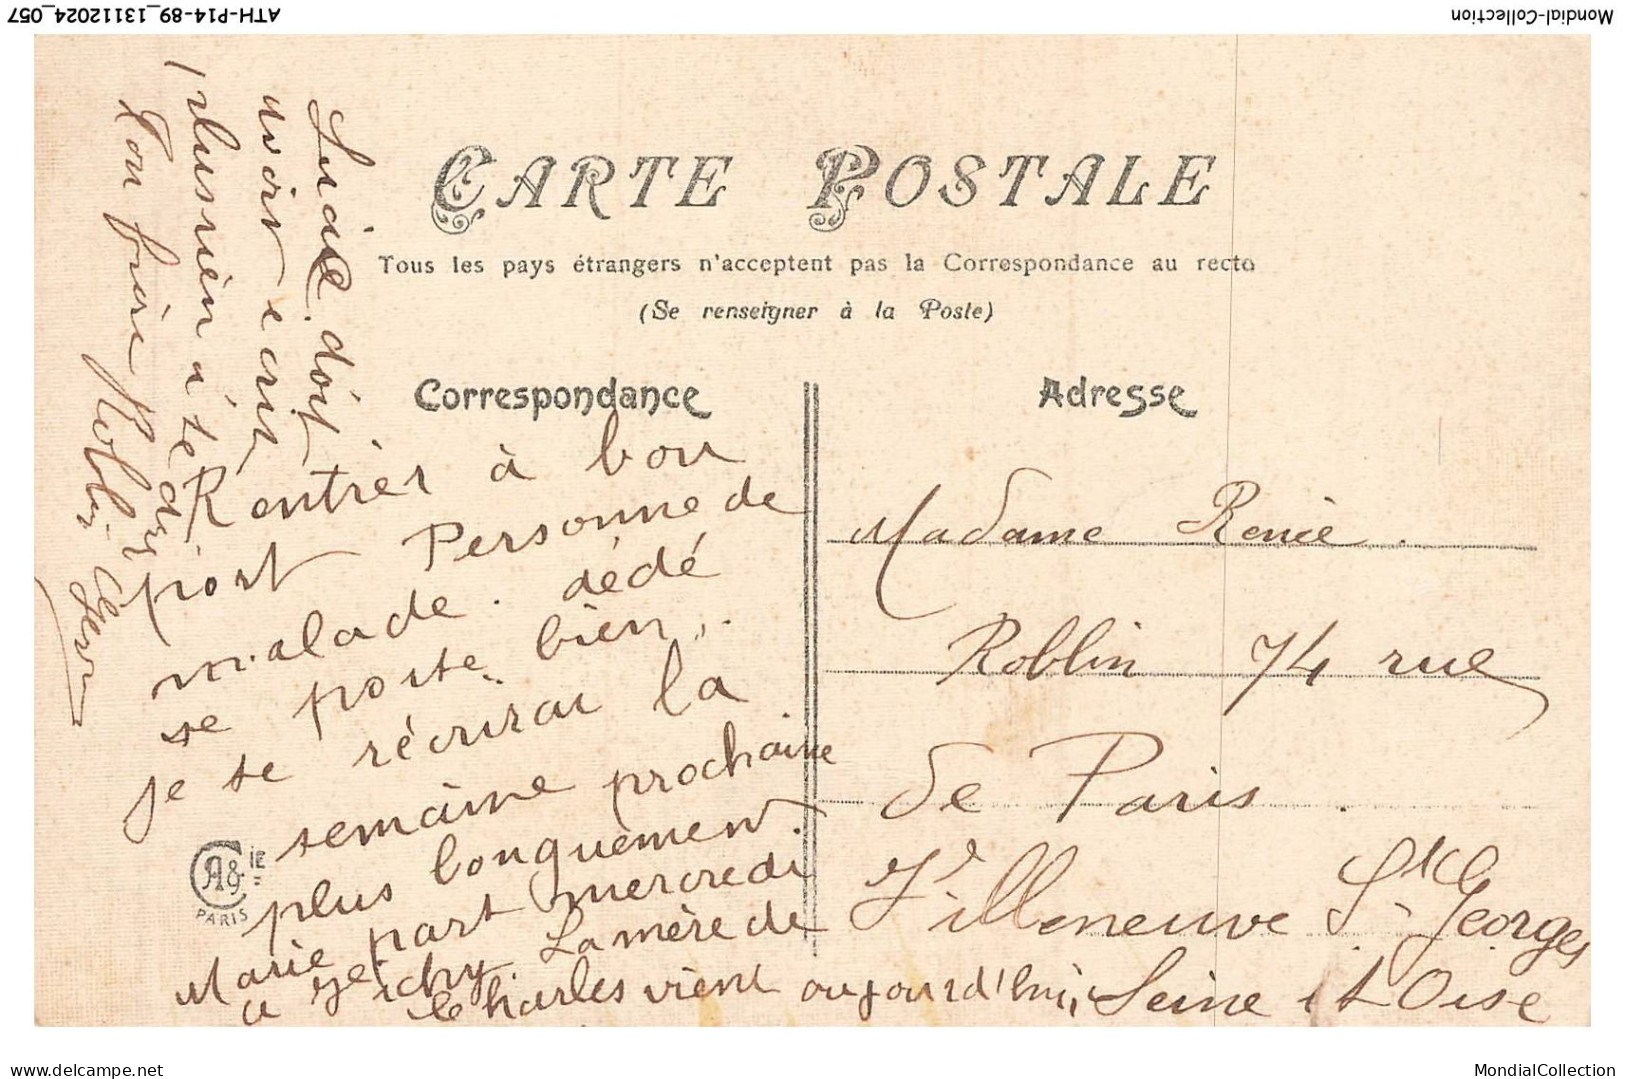 ATH-P14-89_13112024_057
Mondial-Collection
CARTE POSTALE
Tous les pays étrangers n'acceptent pas la Correspondance au recto
(Se renseigner à la Poste)
Correspondance
Adresse
Rentrés à bon
port Personne de
malade. dédé
se porte bien.
je te récrirai la
semaine prochaine
plus longuement.
Marie part mercredi
a Veichy. La mère de
Charles vient aujourd'hui
Lucile doit
avoir ecrit
plus rien a te dire
Ton frère Roblin
Madame Renée.
Roblin 74 rue
de Paris.
Villeneuve St Georges
Seine et Oise
A & Cie
PARIS
delcampe.net
MondialCollection